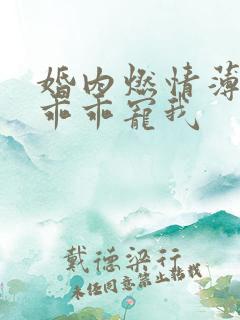 婚内燃情薄
乖乖宠我
戴德梁行
未经同意禁止转载